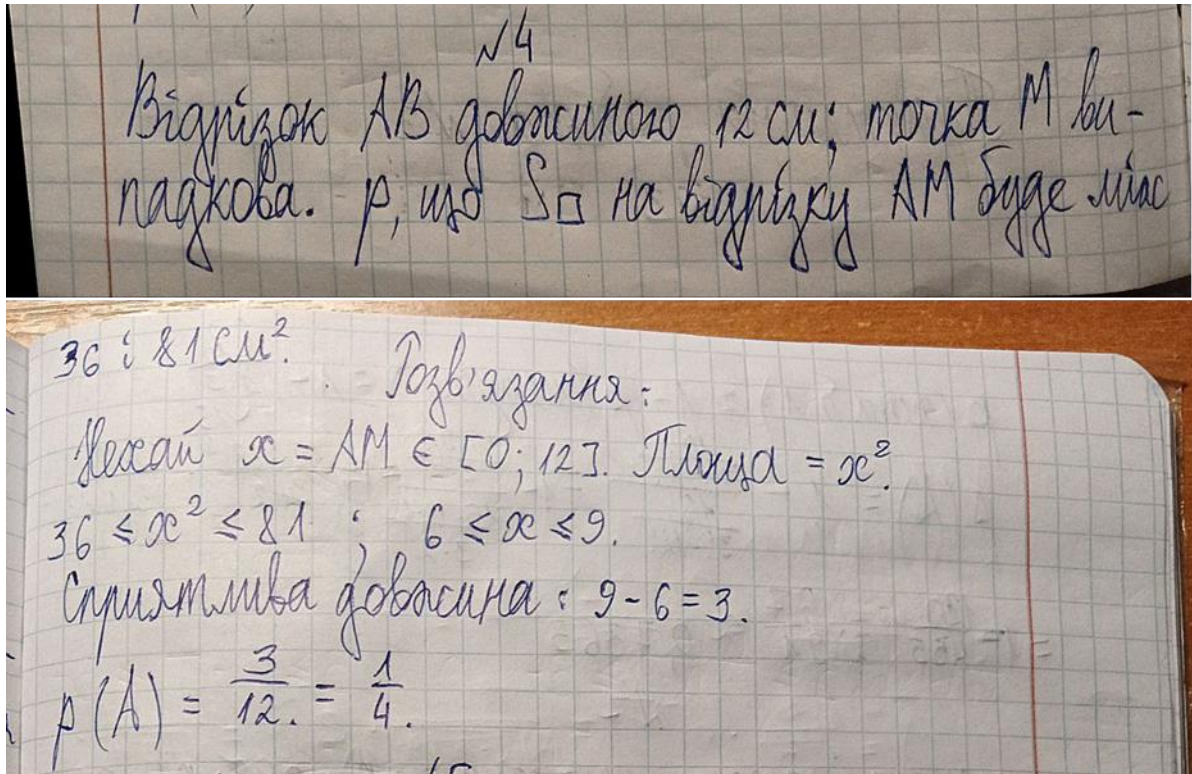 №4
Відрізок AB довжиною 12 см; точка M ви-
падкова. p, що S□ на відрізку AM буде між
36 і 81 см².
Розв'язання:
Нехай x = AM ∈ [0; 12]. Площа = x².
36 ≤ x² ≤ 81 ; 6 ≤ x ≤ 9.
Сприятлива довжина: 9 - 6 = 3.
p(A) = 3/12. = 1/4.